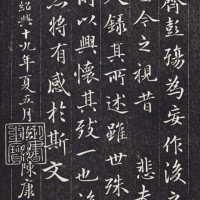 齊彭殤為妄作後之
今之視昔 悲夫
人錄其所述雖世殊
所以興懷其致一也
將有感於斯文
紹興十九年夏五月
陳康